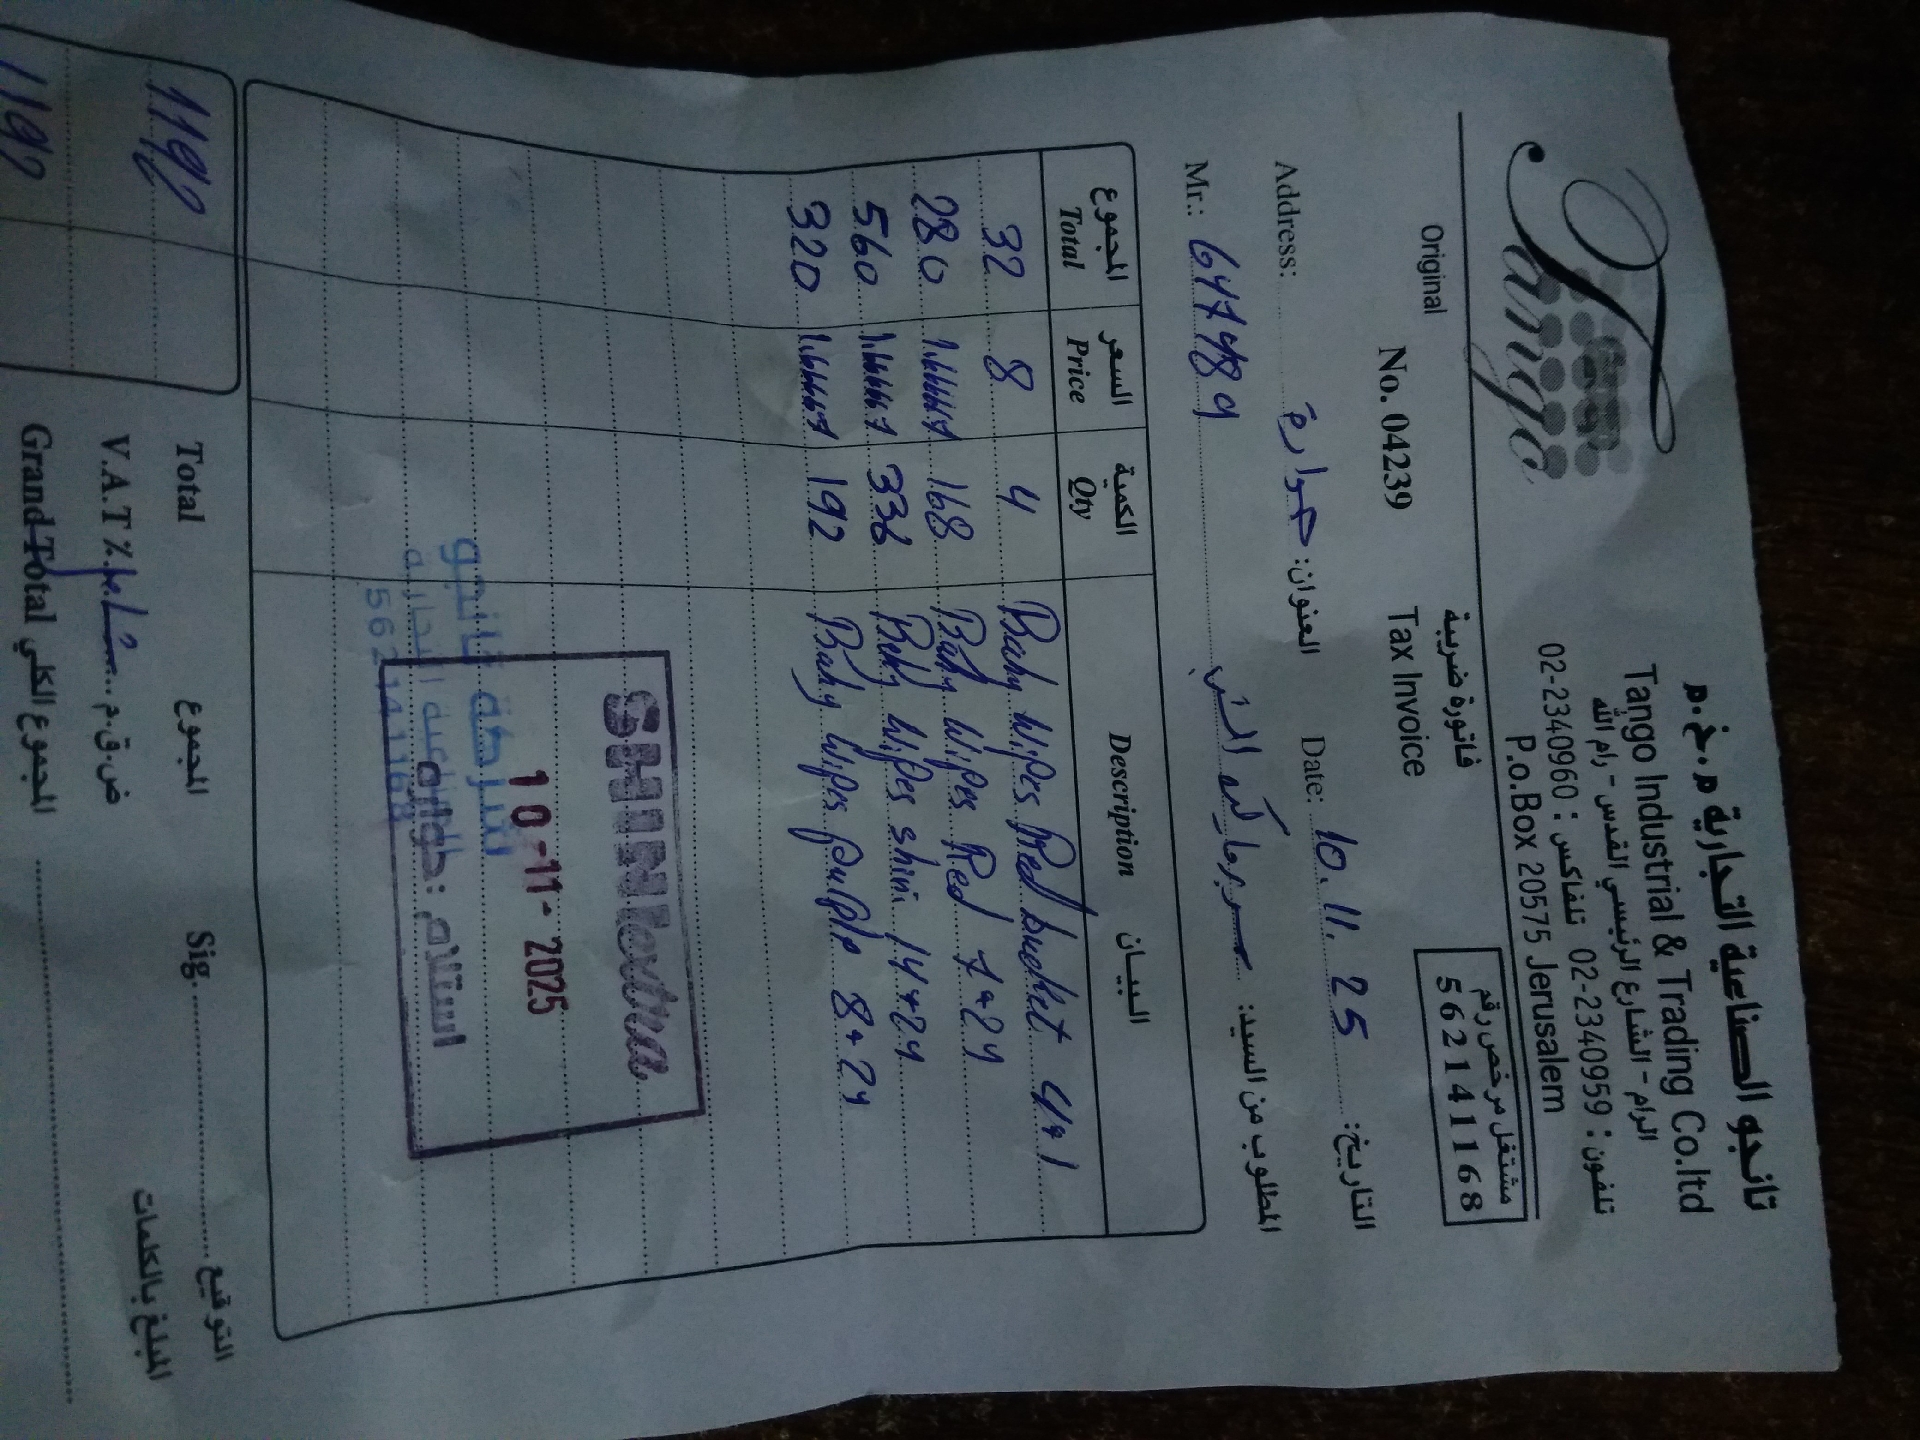 Tango
تانجو الصناعية التجارية م.خ.م
Tango Industrial & Trading Co.ltd
الرام - الشارع الرئيسي القدس - رام الله
تلفون : 02-2340959 تلفاكس : 02-2340960
P.o.Box 20575 Jerusalem
فاتورة ضريبية
مشتغل مرخص رقم
562141168
Original
No. 04239
Tax Invoice
Address: حوارة العنوان:
Date: 10.11.25 التاريخ:
Mr.: 647489 المطلوب من السيد:
المجموع السعر الكمية البيان
Total Price Qty Description
32 8 4 Baby Wipes Red bucket 4*1
280 1.66667 168 Baby Wipes Red 7*24
560 1.66667 336 Baby Wipes shini 14*24
320 1.66667 192 Baby Wipes purple 8*24
SHINIextra
10-11-2025
استلام : حواره
شركة تانجو
الصناعية التجارية
562141168
1192 Total المجموع Sig. التوقيع
V.A.T % ض.ق.م المبلغ بالكلمات
1192 Grand Total المجموع الكلي